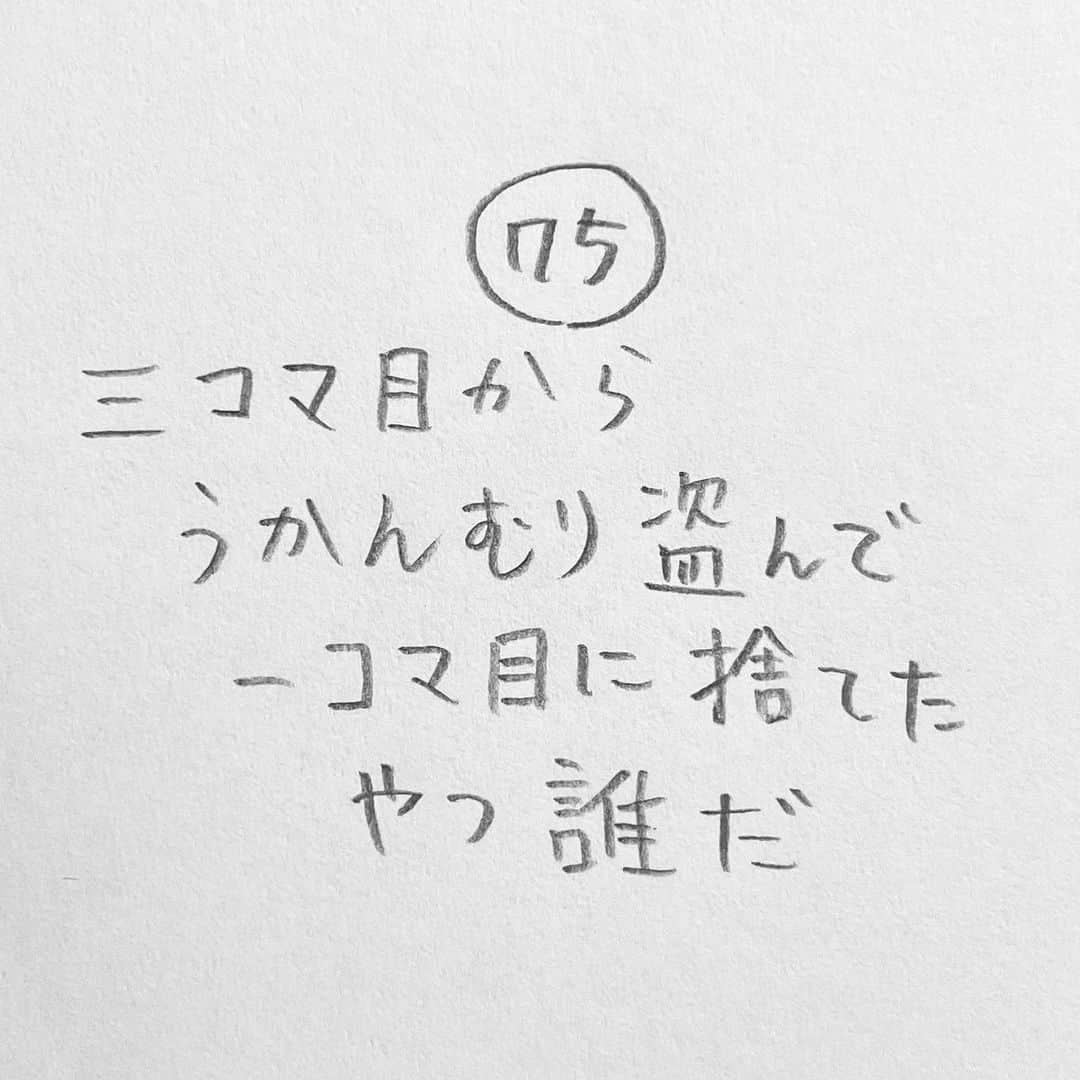 75
三コマ目から
うかんむり盗んで
一コマ目に捨てた
やつ誰だ